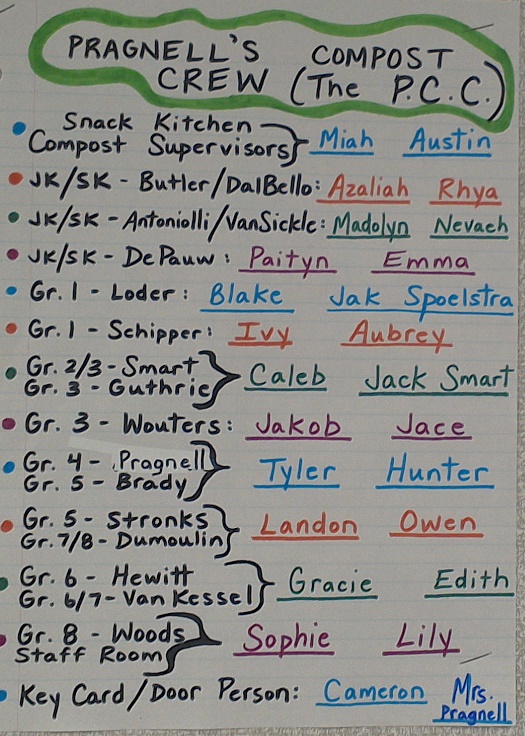 PRAGNELL'S COMPOST
CREW (The P.C.C.)
Snack Kitchen
Compost Supervisors Miah Austin
JK/SK - Butler/DalBello: Azaliah Rhya
JK/SK - Antoniolli/VanSickle: Madolyn Nevaeh
JK/SK - DePauw: Paityn Emma
Gr. 1 - Loder: Blake Jak Spoelstra
Gr. 1 - Schipper: Ivy Aubrey
Gr. 2/3 - Smart
Gr. 3 - Guthrie Caleb Jack Smart
Gr. 3 - Wouters: Jakob Jace
Gr. 4 - Pragnell
Gr. 5 - Brady Tyler Hunter
Gr. 5 - Stronks
Gr. 7/8 - Dumoulin Landon Owen
Gr. 6 - Hewitt
Gr. 6/7 - Van Kessel Gracie Edith
Gr. 8 - Woods
Staff Room Sophie Lily
Key Card/Door Person: Cameron Mrs.
Pragnell